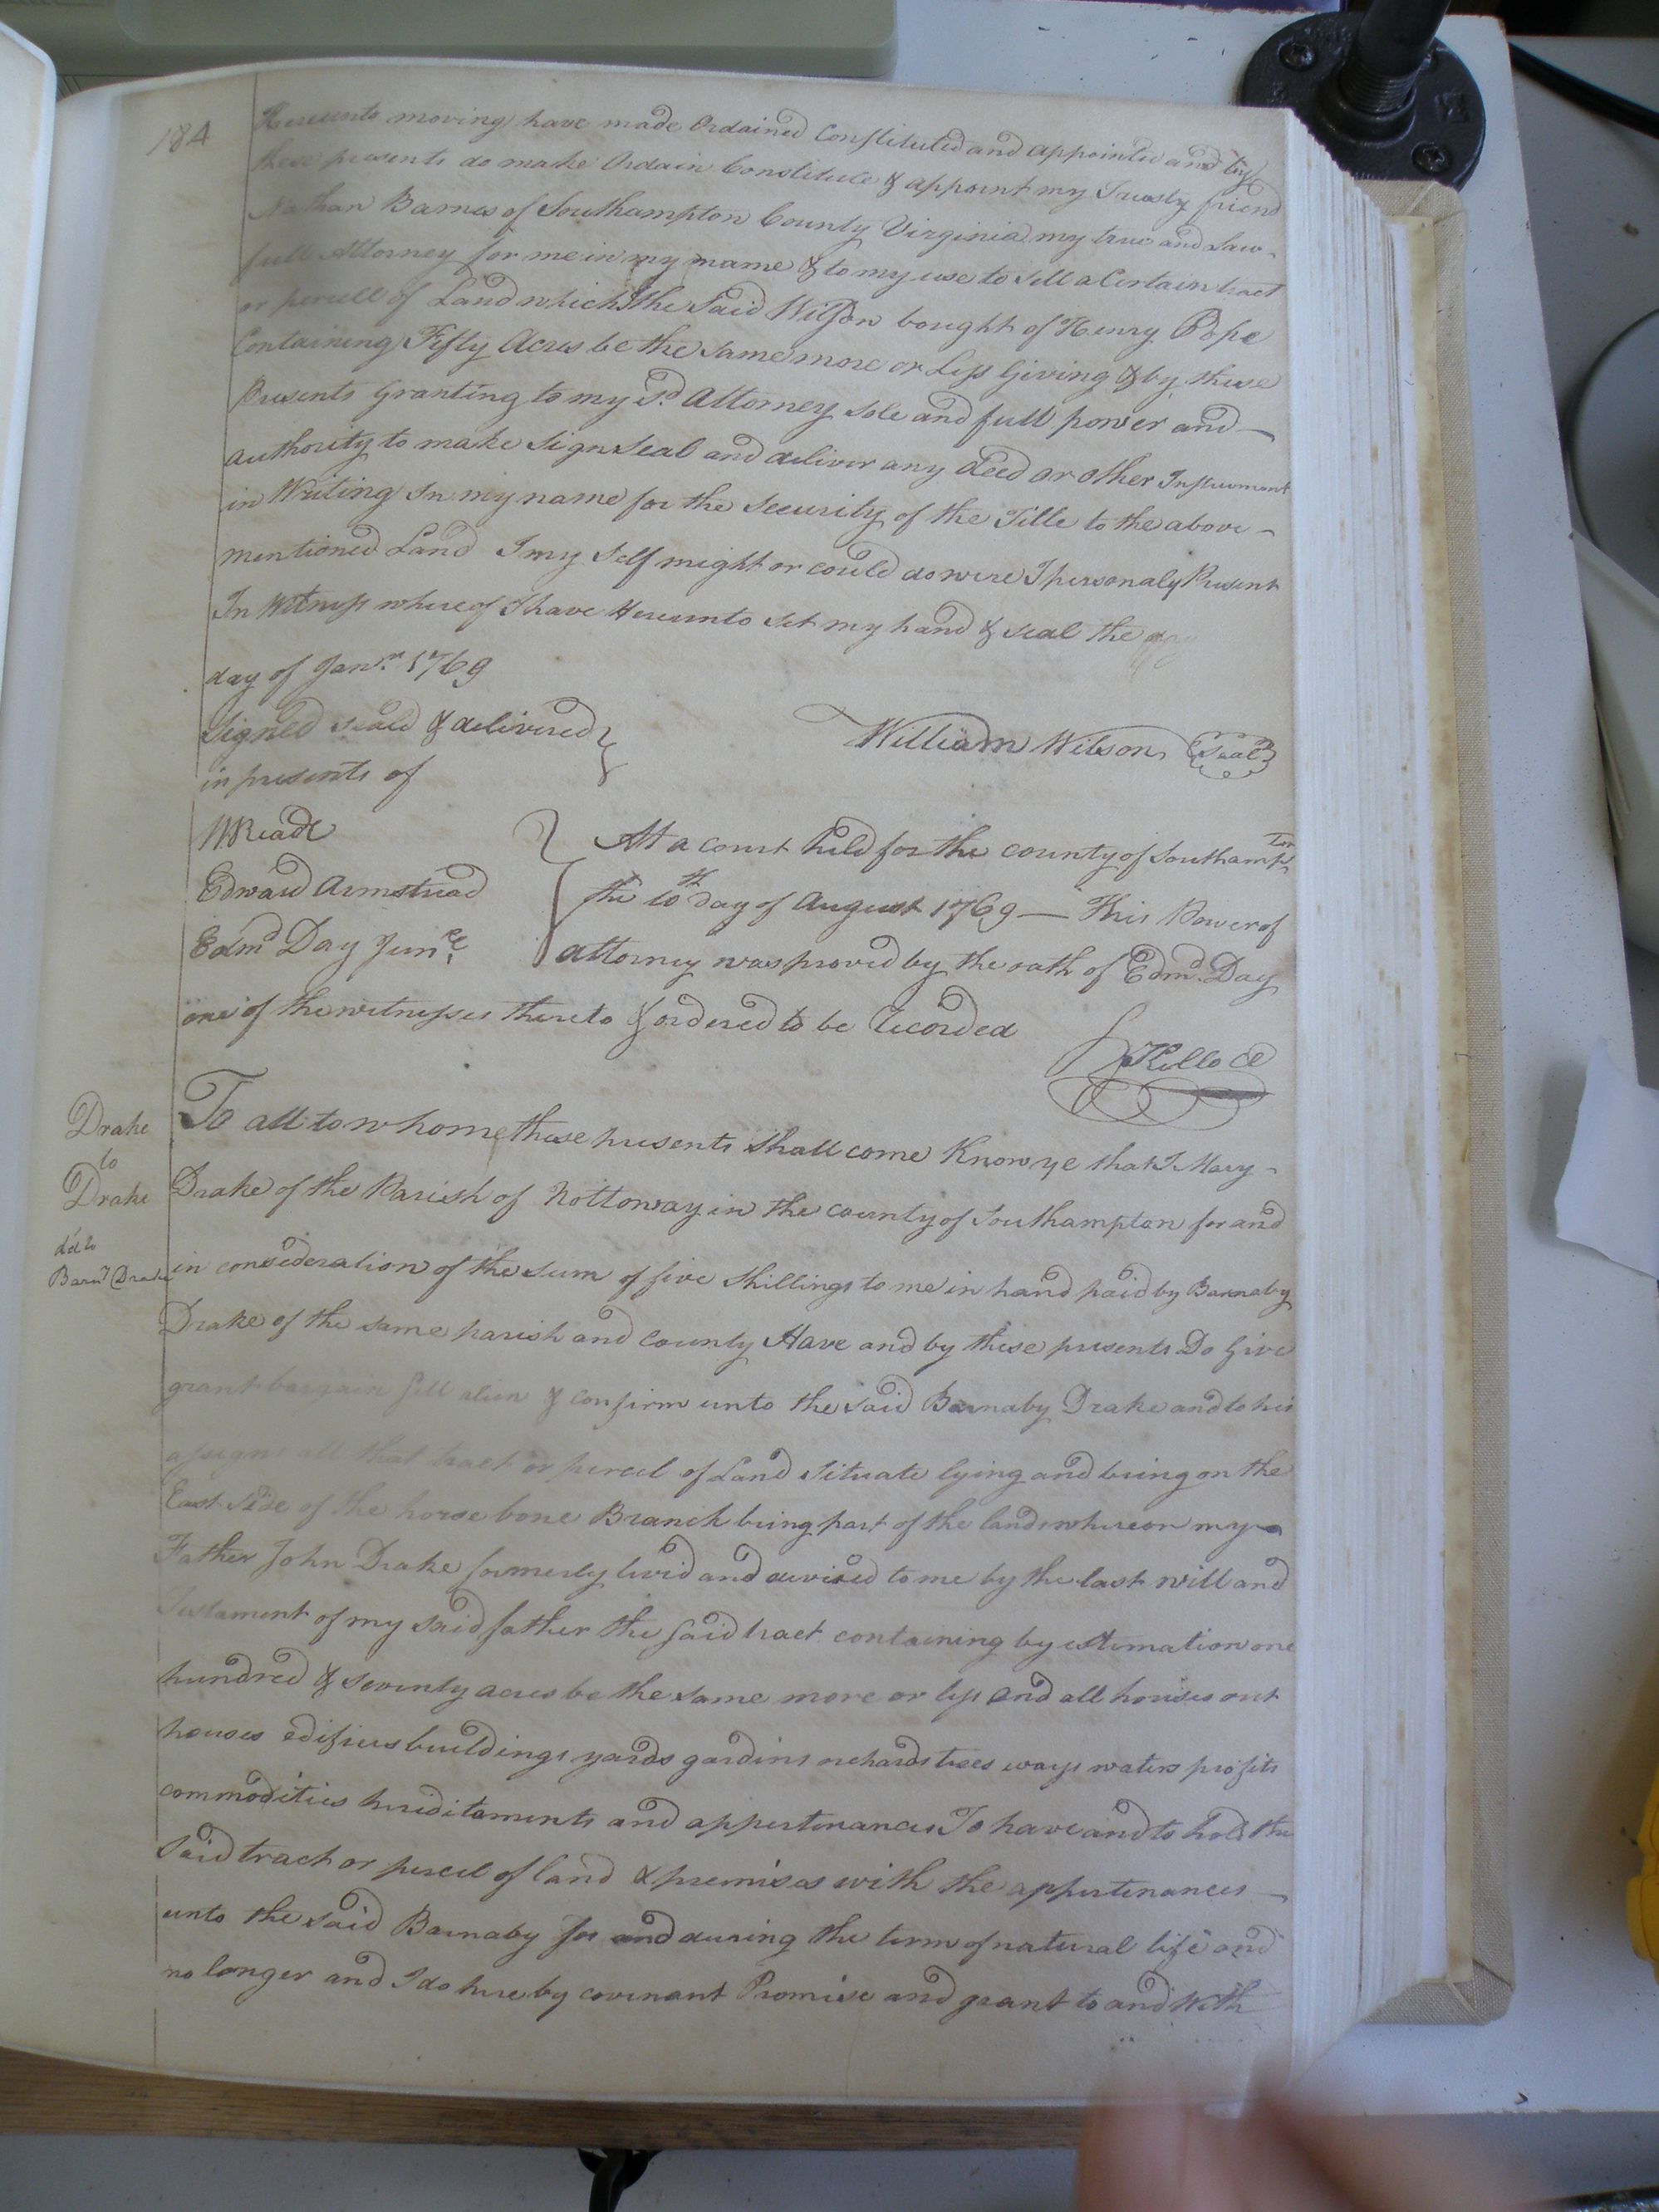 184
Hereunto moving have made Ordained Constituted and appointed and by
these presents do make Ordain Constitute & appoint my Trusty friend
Nathan Barnes of Southampton County Virginia my true and Law-
full Attorney for me in my name & to my use to sell a Certain tract
or percell of Land which I the Said Wilson bought of Henry Pope
Containing Fifty Acres be the same more or Less Giving & by these
Presents Granting to my Sd. Attorney sole and full power and
authority to make Sign Seal and deliver any deed or other Instrument
in Writing In my name for the Security of the Title to the above-
mentioned Land I my Self might or could do were I personaly Present
In Witness whereof I have Hereunto set my hand & seal the
day of Janr. 1769
Signed seald & delivered
in presents of
William Wilson Seal
WReade
Edward Armstead
Edmd Day Junr.
At a Court held for the county of Southampton
the 10th day of August 1769 — This Power of
attorney was proved by the oath of Edmd. Day
one of the witnesses thereto & ordered to be Recorded
Drake
to
Drake
To all to whome these presents Shall come Know ye that I Mary
Drake of the Parish of Nottoway in the county of Southampton for and
dd to
Barny Drake
in consideration of the sum of five Shillings to me in hand paid by Barnaby
Drake of the same parish and County Have and by these presents Do Give
grant bargain sell alien & confirm unto the said Barnaby Drake and to his
assigns all that tract or percel of Land Situate lying and being on the
East Side of the horse bone Branch being part of the lands whereon my
Father John Drake formerly lived and devised to me by the last will and
Testament of my said father the said tract containing by estimation one
hundred & seventy acres be the same more or less and all houses out
houses edifices buildings yards gardins orchards trees ways waters profits
commodities heriditaments and appertenances To have and to hold the
Said tract or percel of land & premises with the appertenances
unto the said Barnaby for and during the term of natural life and
no longer and I do here by covenant Promise and grant to and with